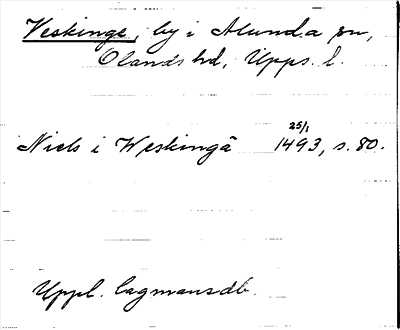 Veskinge, by i Alunda sn,
Olands hd, Upps. l.
Niels i Weskingä 25/1 1493, s. 80.
Uppl. lagmansdb.